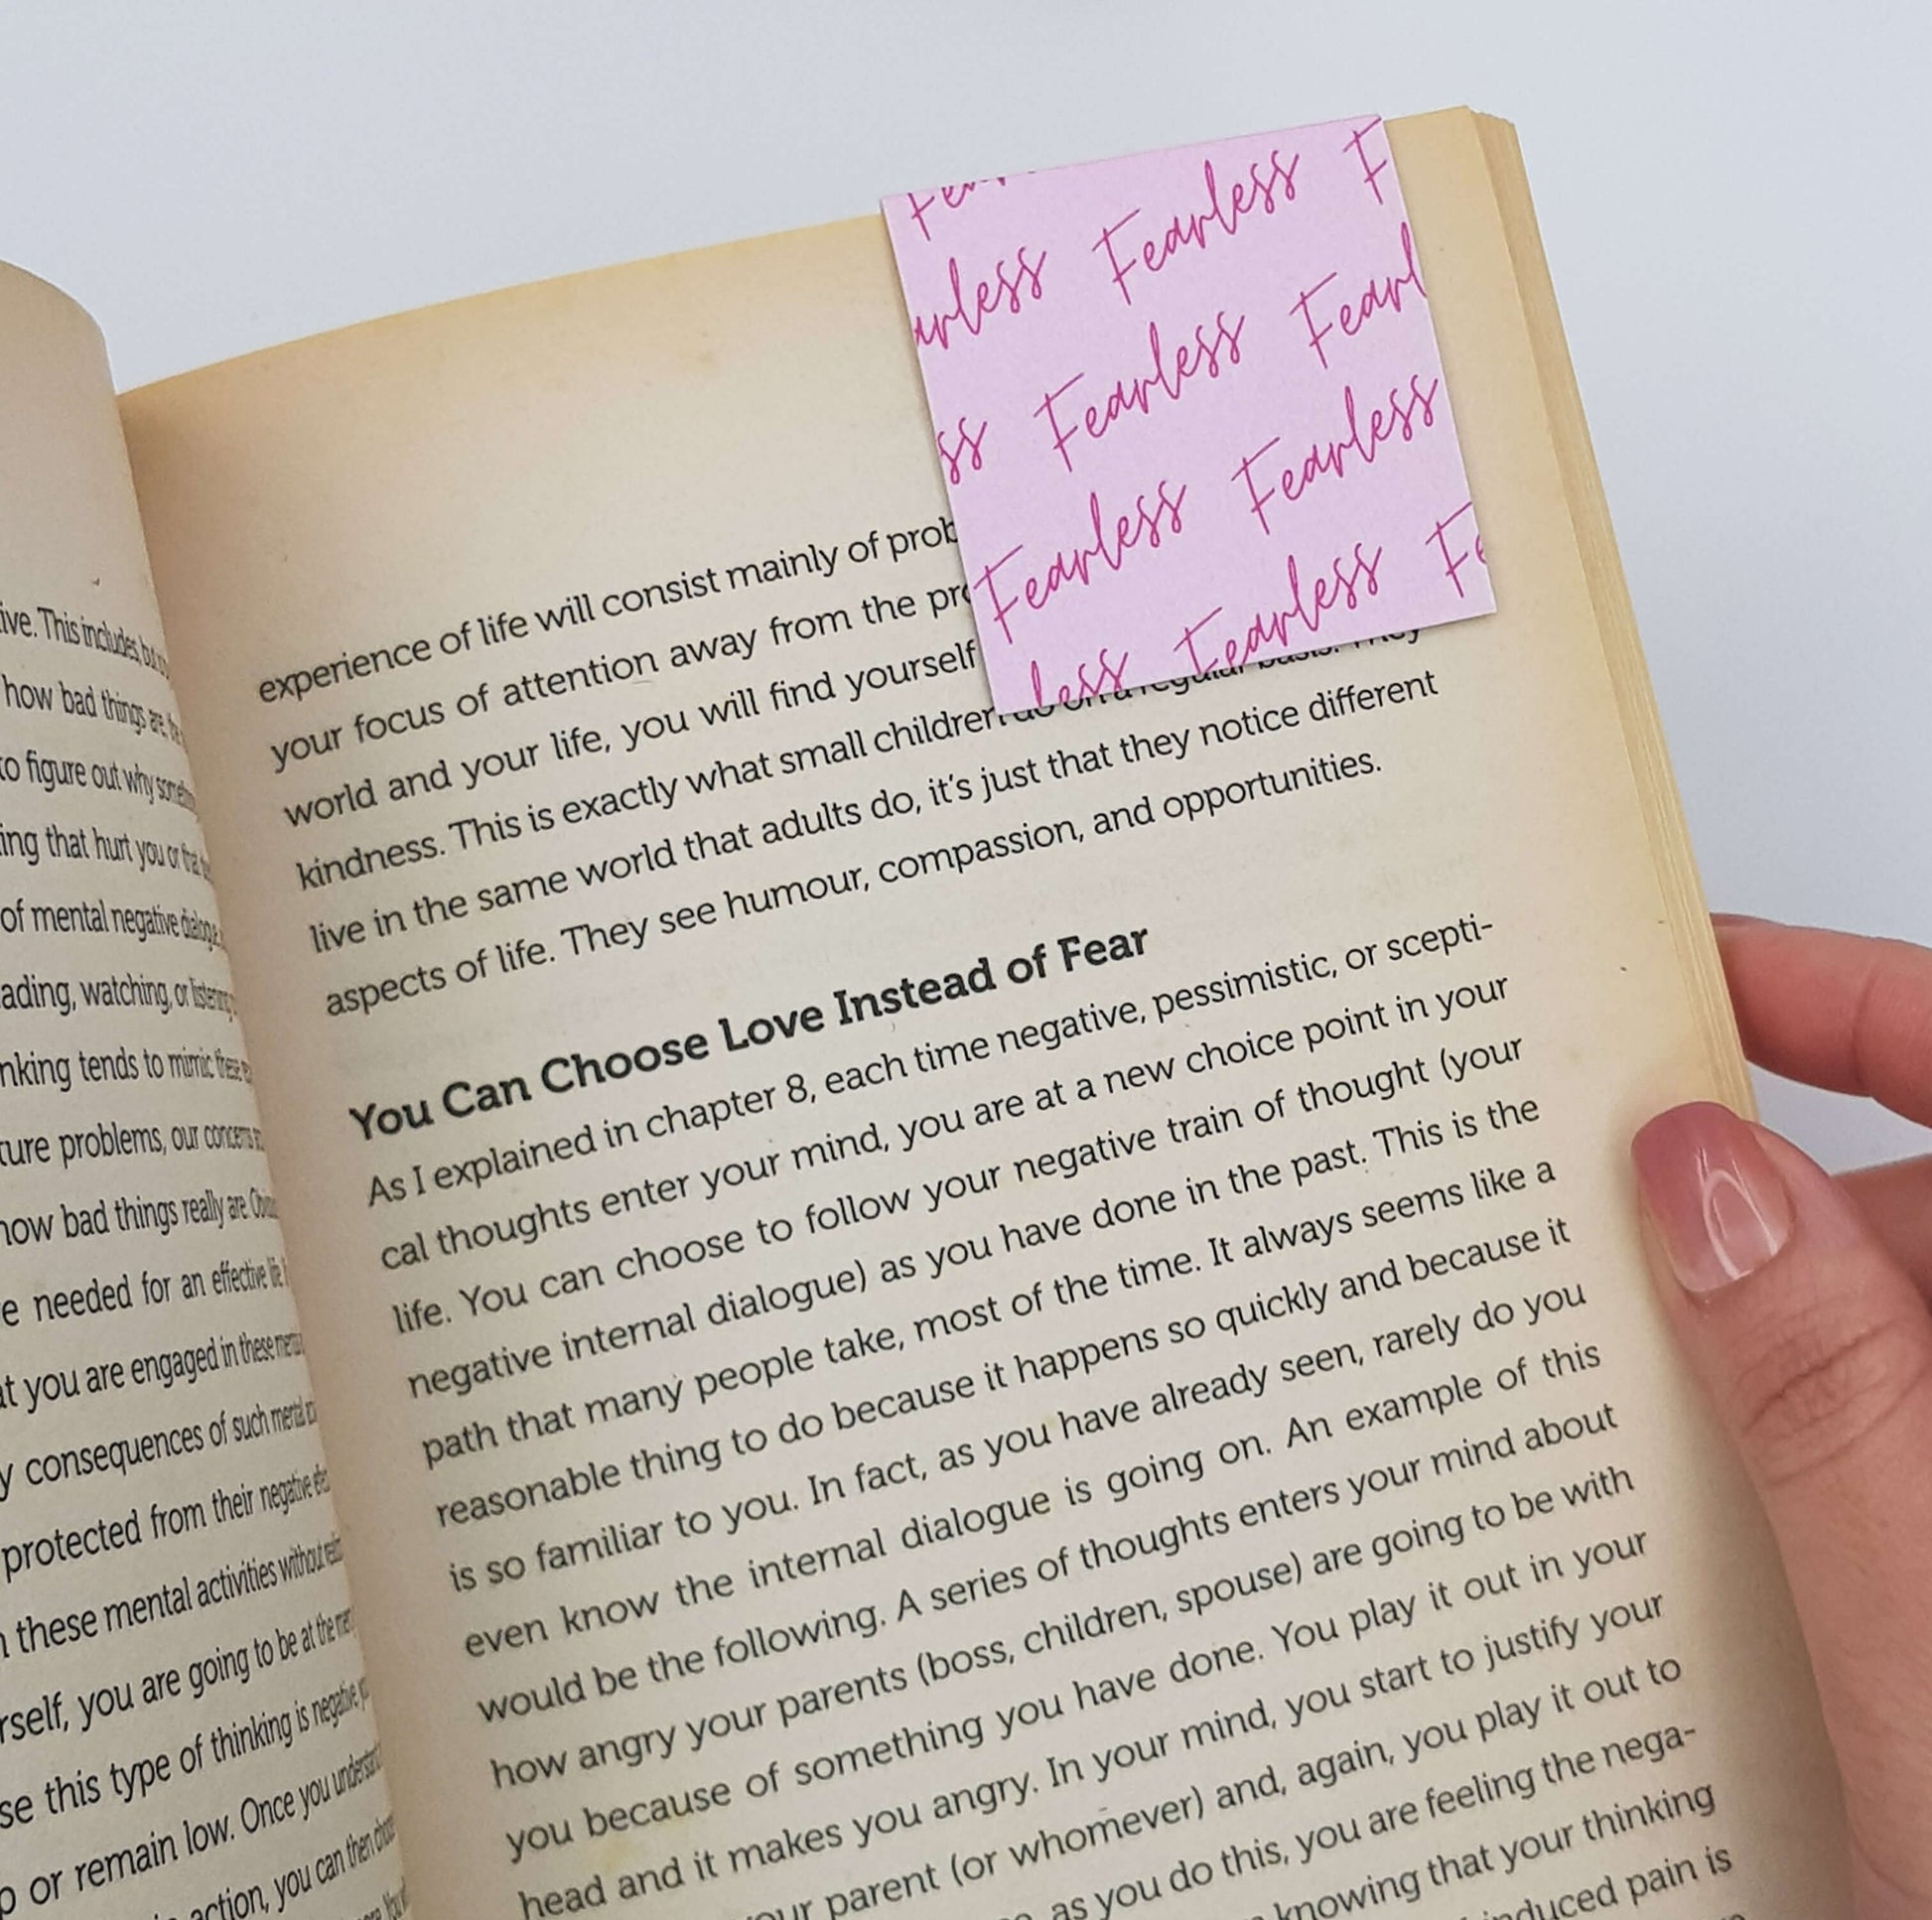 Fear
arless Fearless F
ss Fearless Fearl
Fearless Fearless
less Fearless Fe
ive. This includes, but
how bad things are, the
to figure out why
ing that hurt you or
of mental negative dialogue,
ading, watching, or listening
nking tends to mimic these
ture problems, our concerns
how bad things really are.
e needed for an effective life.
at you are engaged in these
y consequences of such mental
protected from their negative
n these mental activities without
rself, you are going to be at the
se this type of thinking is negative
p or remain low. Once you understand
action, you can then
experience of life will consist mainly of prob
your focus of attention away from the pro
world and your life, you will find yourself
kindness. This is exactly what small children do on a regular basis. They
live in the same world that adults do, it's just that they notice different
aspects of life. They see humour, compassion, and opportunities.
You Can Choose Love Instead of Fear
As I explained in chapter 8, each time negative, pessimistic, or scepti-
cal thoughts enter your mind, you are at a new choice point in your
life. You can choose to follow your negative train of thought (your
negative internal dialogue) as you have done in the past. This is the
path that many people take, most of the time. It always seems like a
reasonable thing to do because it happens so quickly and because it
is so familiar to you. In fact, as you have already seen, rarely do you
even know the internal dialogue is going on. An example of this
would be the following. A series of thoughts enters your mind about
how angry your parents (boss, children, spouse) are going to be with
you because of something you have done. You play it out in your
head and it makes you angry. In your mind, you start to justify your
our parent (or whomever) and, again, you play it out to
as you do this, you are feeling the nega-
knowing that your thinking
induced pain is